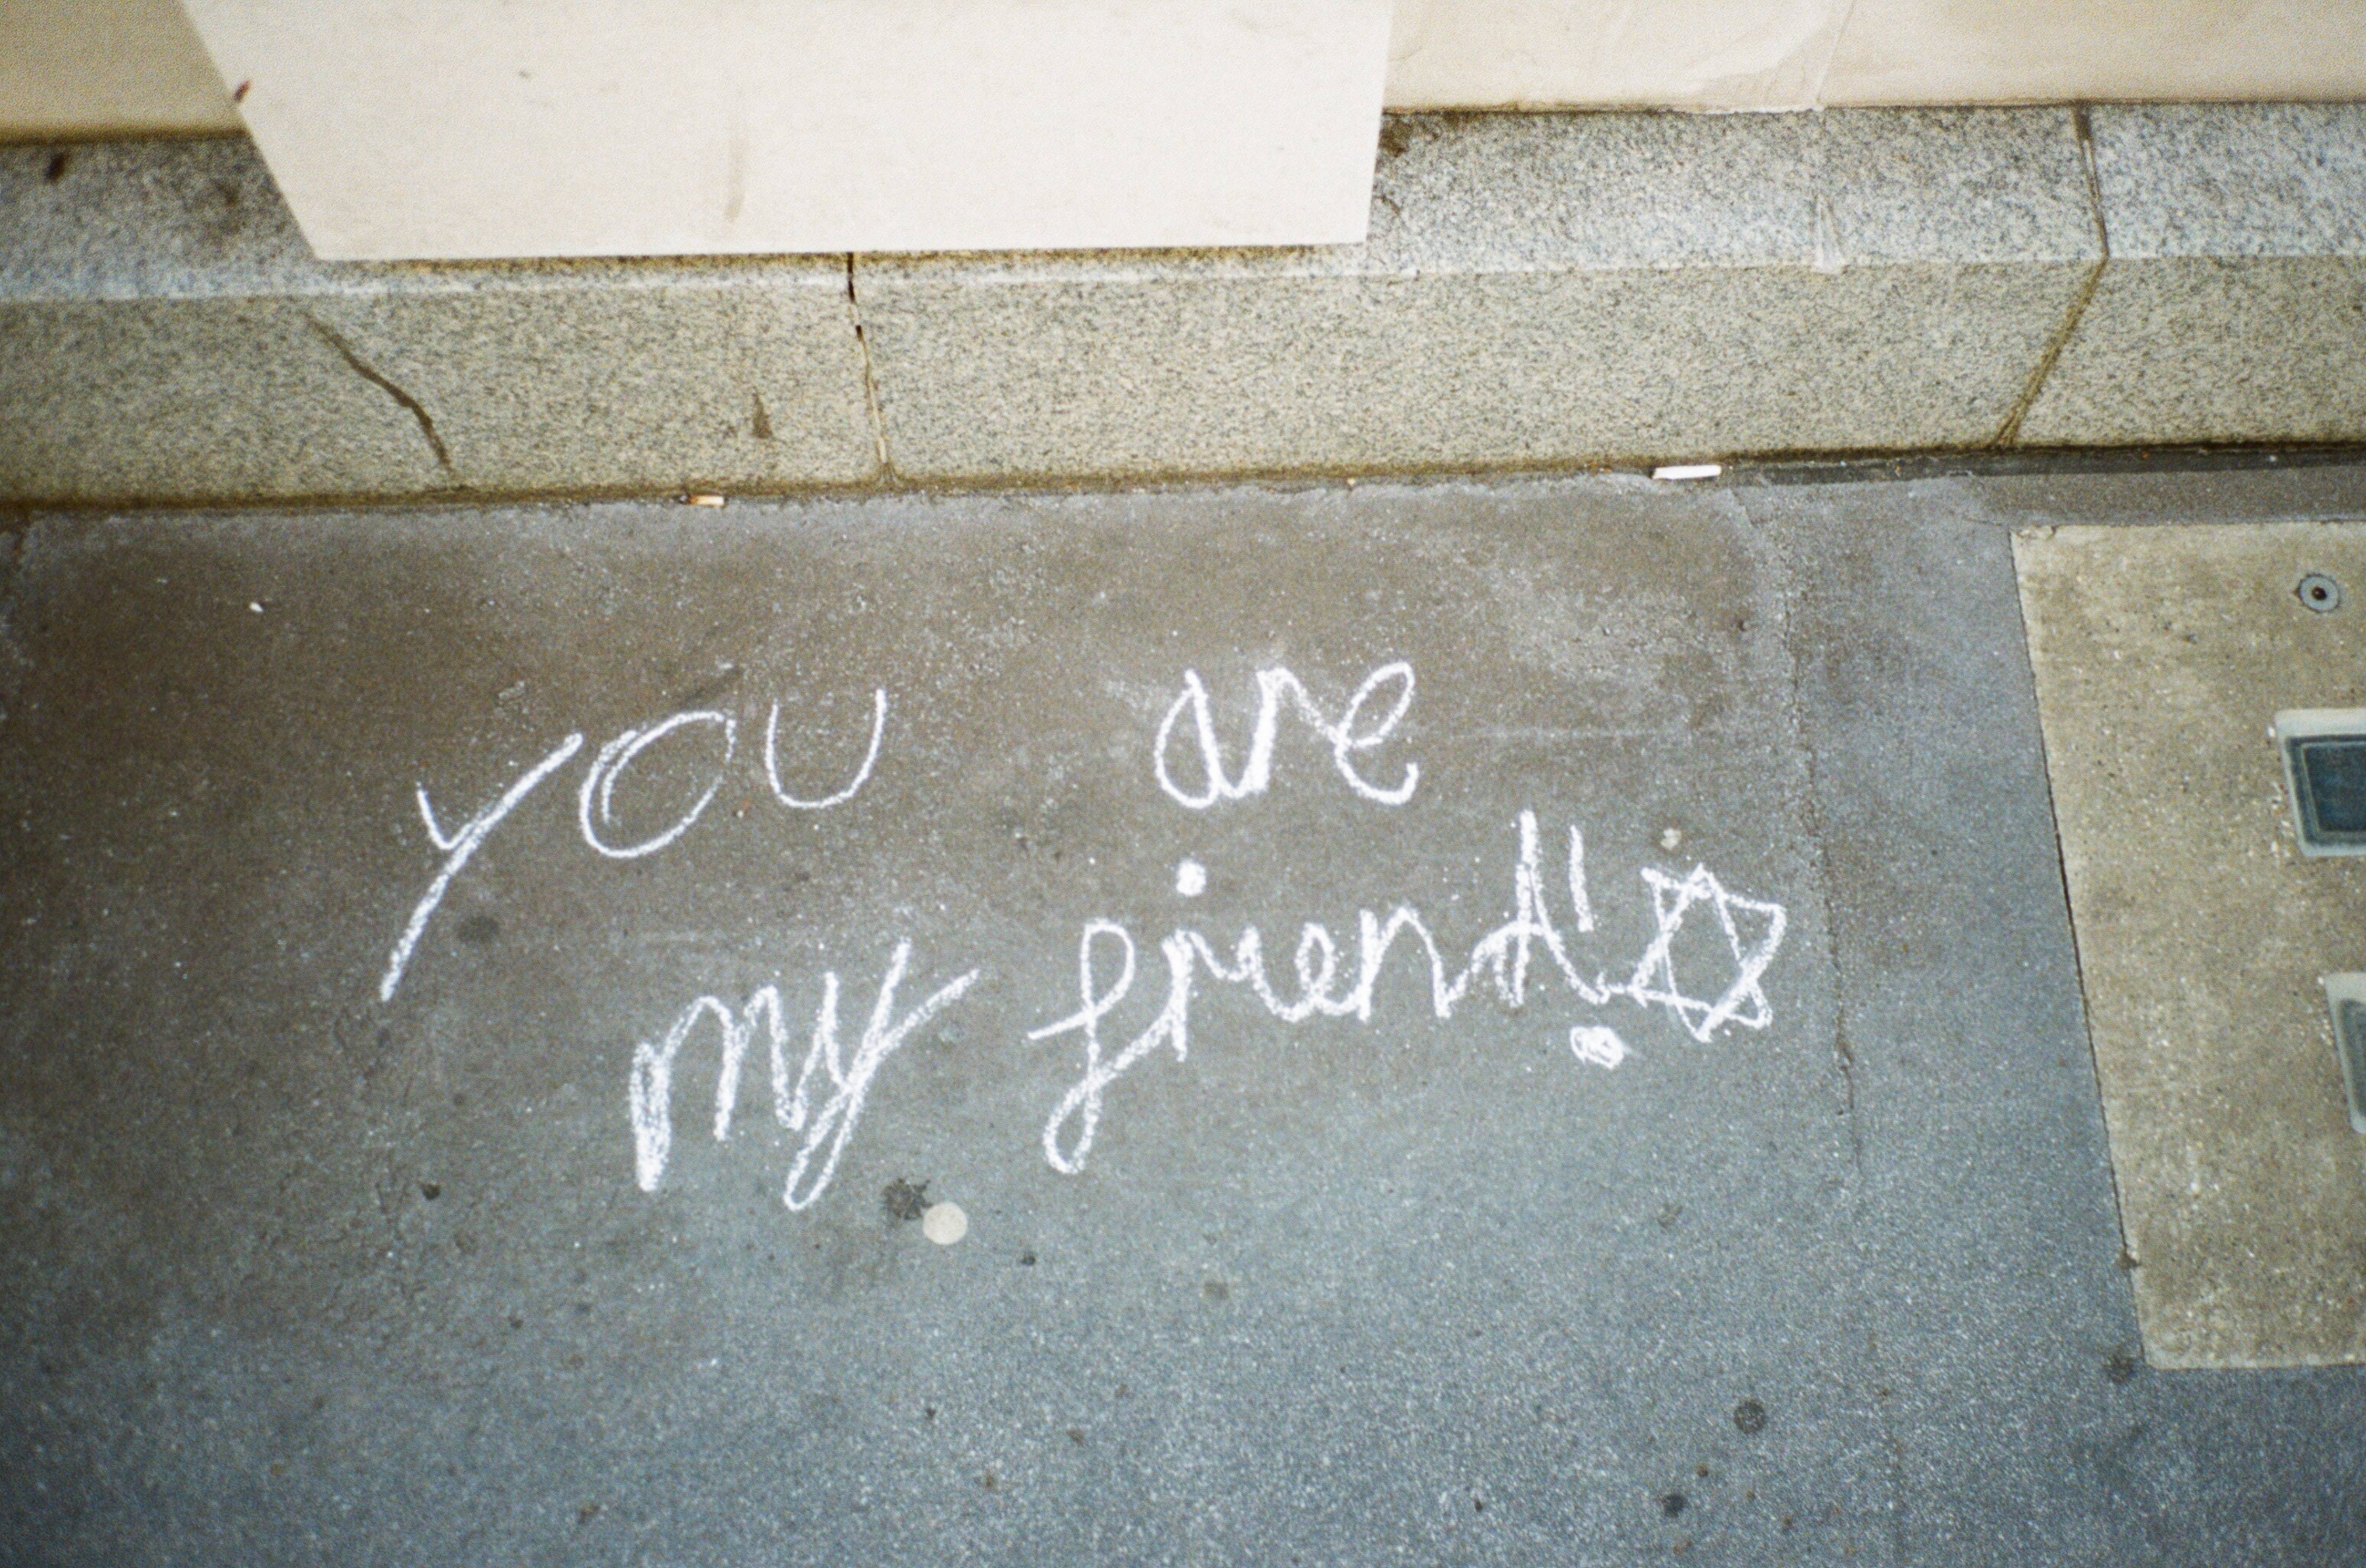 you are
my friend!